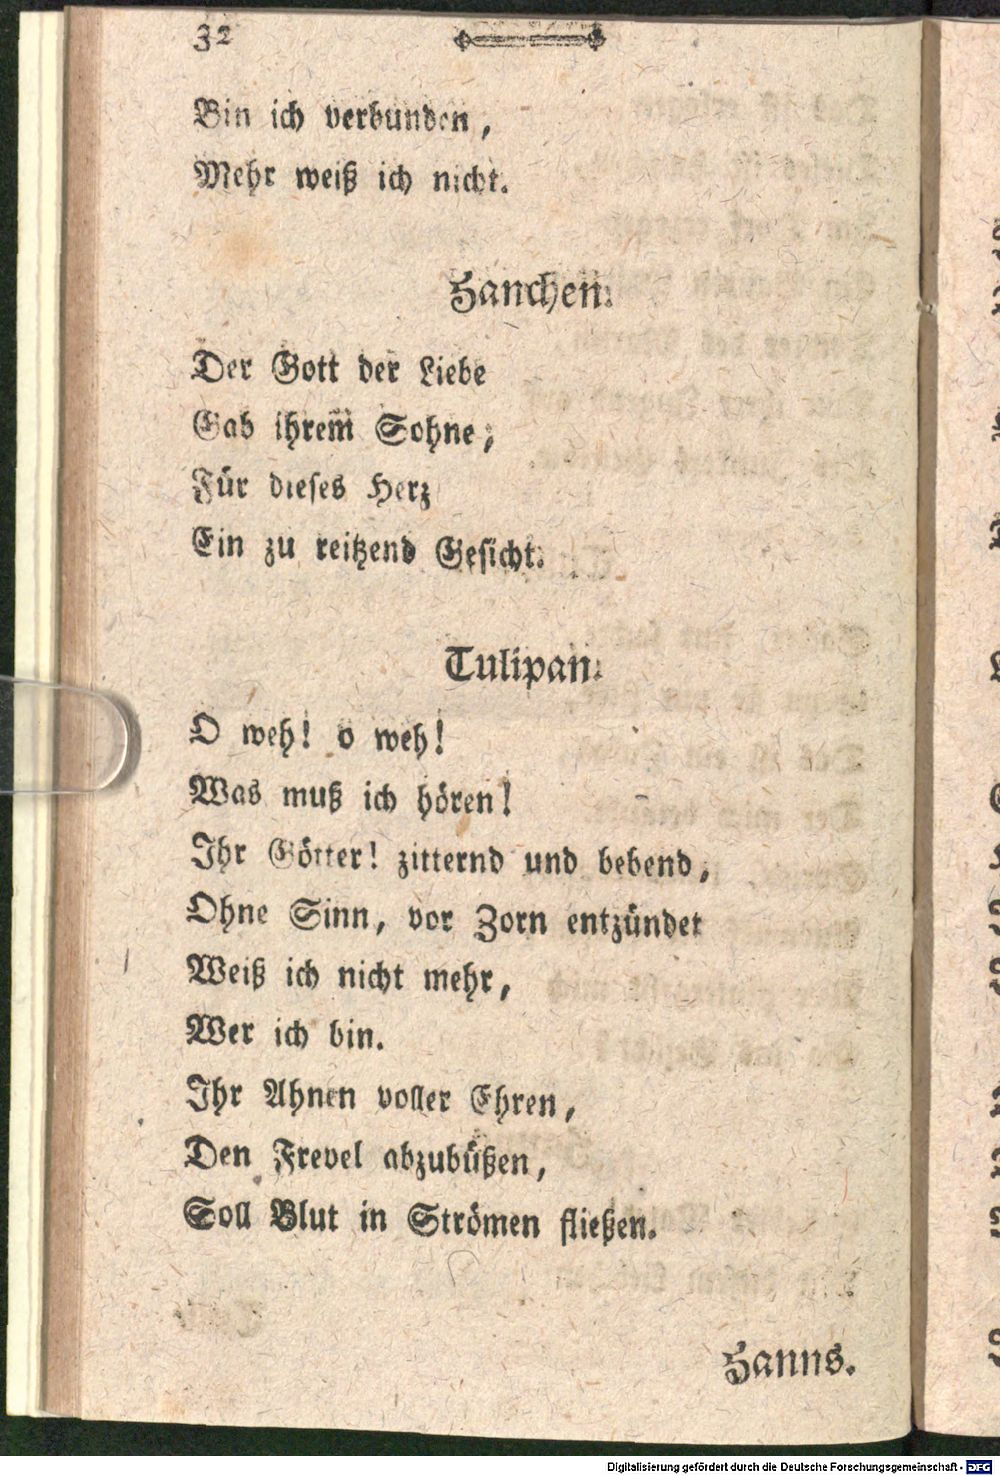 32
Bin ich verbunden,
Mehr weiß ich nicht.
Hanchen.
Der Gott der Liebe
Gab ihrem Sohne,
Für dieses Herz
Ein zu reitzend Gesicht.
Tulipan.
O weh! o weh!
Was muß ich hören!
Ihr Götter! zitternd und bebend,
Ohne Sinn, vor Zorn entzündet
Weiß ich nicht mehr,
Wer ich bin.
Ihr Ahnen voller Ehren,
Den Frevel abzubüßen,
Soll Blut in Strömen fließen.
Hanns.
Digitalisierung gefördert durch die Deutsche Forschungsgemeinschaft - DFG